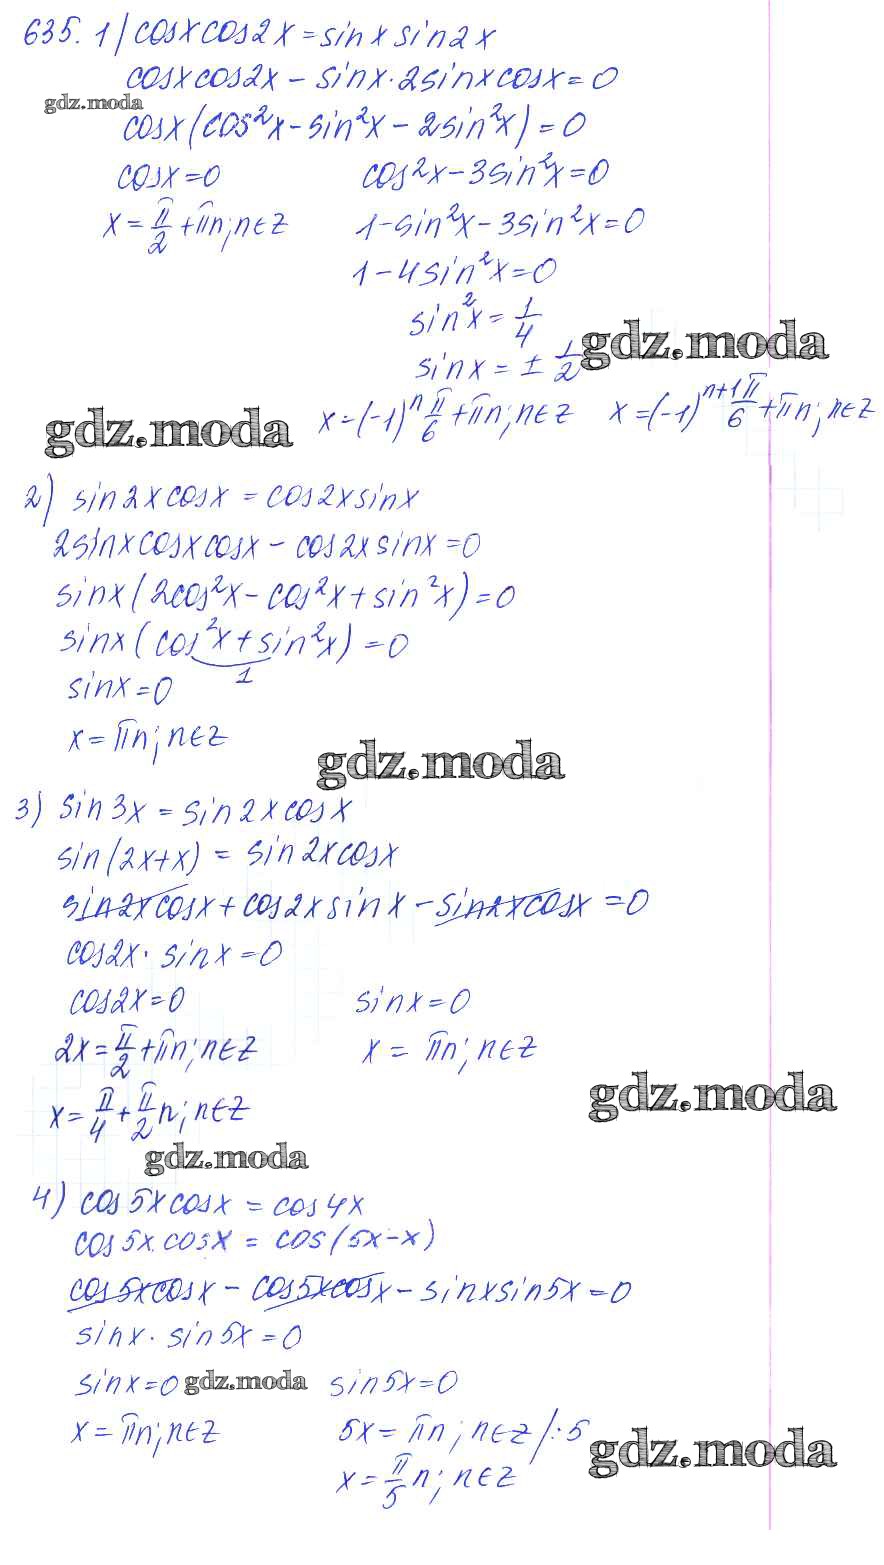 635. 1) cosx cos2x = sinx sin2x
cosx cos2x - sinx·2sinxcosx = 0
gdz.moda
cosx(cos²x - sin²x - 2sin²x) = 0
cosx = 0 cos²x - 3sin²x = 0
x = π/2 + πn; n∈Z 1 - sin²x - 3sin²x = 0
1 - 4sin²x = 0
sin²x = 1/4
gdz.moda
sinx = ± 1/2
x = (-1)ⁿ π/6 + πn; n∈Z x = (-1)ⁿ⁺¹ π/6 + πn; n∈Z
gdz.moda
2) sin2x cosx = cos2x sinx
2sinx cosx cosx - cos2x sinx = 0
sinx(2cos²x - cos²x + sin²x) = 0
sinx(cos²x + sin²x) = 0
1
sinx = 0
x = πn; n∈Z
gdz.moda
3) sin3x = sin2x cosx
sin(2x+x) = sin2x cosx
sin2x cosx + cos2x sinx - sin2x cosx = 0
cos2x · sinx = 0
cos2x = 0 sinx = 0
2x = π/2 + πn; n∈Z x = πn; n∈Z
gdz.moda
x = π/4 + π/2 n; n∈Z
gdz.moda
4) cos5x cosx = cos4x
cos5x cosx = cos(5x-x)
cos5x cosx - cos5x cosx - sinx sin5x = 0
sinx · sin5x = 0
sinx = 0 gdz.moda sin5x = 0
x = πn; n∈Z 5x = πn; n∈Z /:5
gdz.moda
x = π/5 n; n∈Z